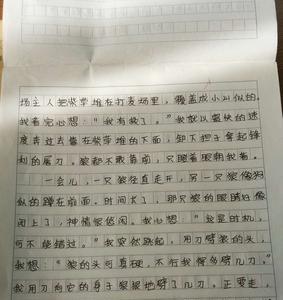 场主人把柴草堆在打麦场里，覆盖成小山似的。
我看完心想："我有救了。"我就以最快的速
度奔过去靠在柴草的下面，卸下担子拿起锋
利的屠刀。狼都不敢靠前，只瞪着眼朝我看。
一会儿，一只狼径直走开，另一只狼像狗
似的蹲在前面。时间长了，那只狼的眼睛好像
闭上了，神情很悠闲。我心想："这是时机，
可不能错过。"我突然跳起，用刀劈狼的头，
我想："狼的头可真硬，不行我得多劈几刀。"
我用刀向它的身子狠狠地劈了几刀。正要走，